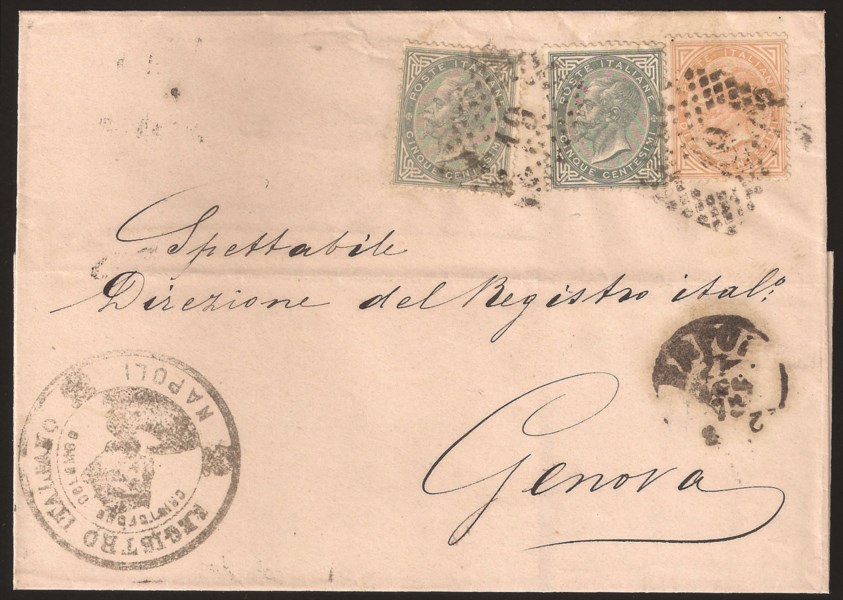 POSTE ITALIANE
CINQUE CENTESIMI
POSTE ITALIANE
CINQUE CENTESIMI
POSTE ITALIANE
Spettabile
Direzione del Registro ital.º
Genova
REGISTRO ITALIANO
NAPOLI